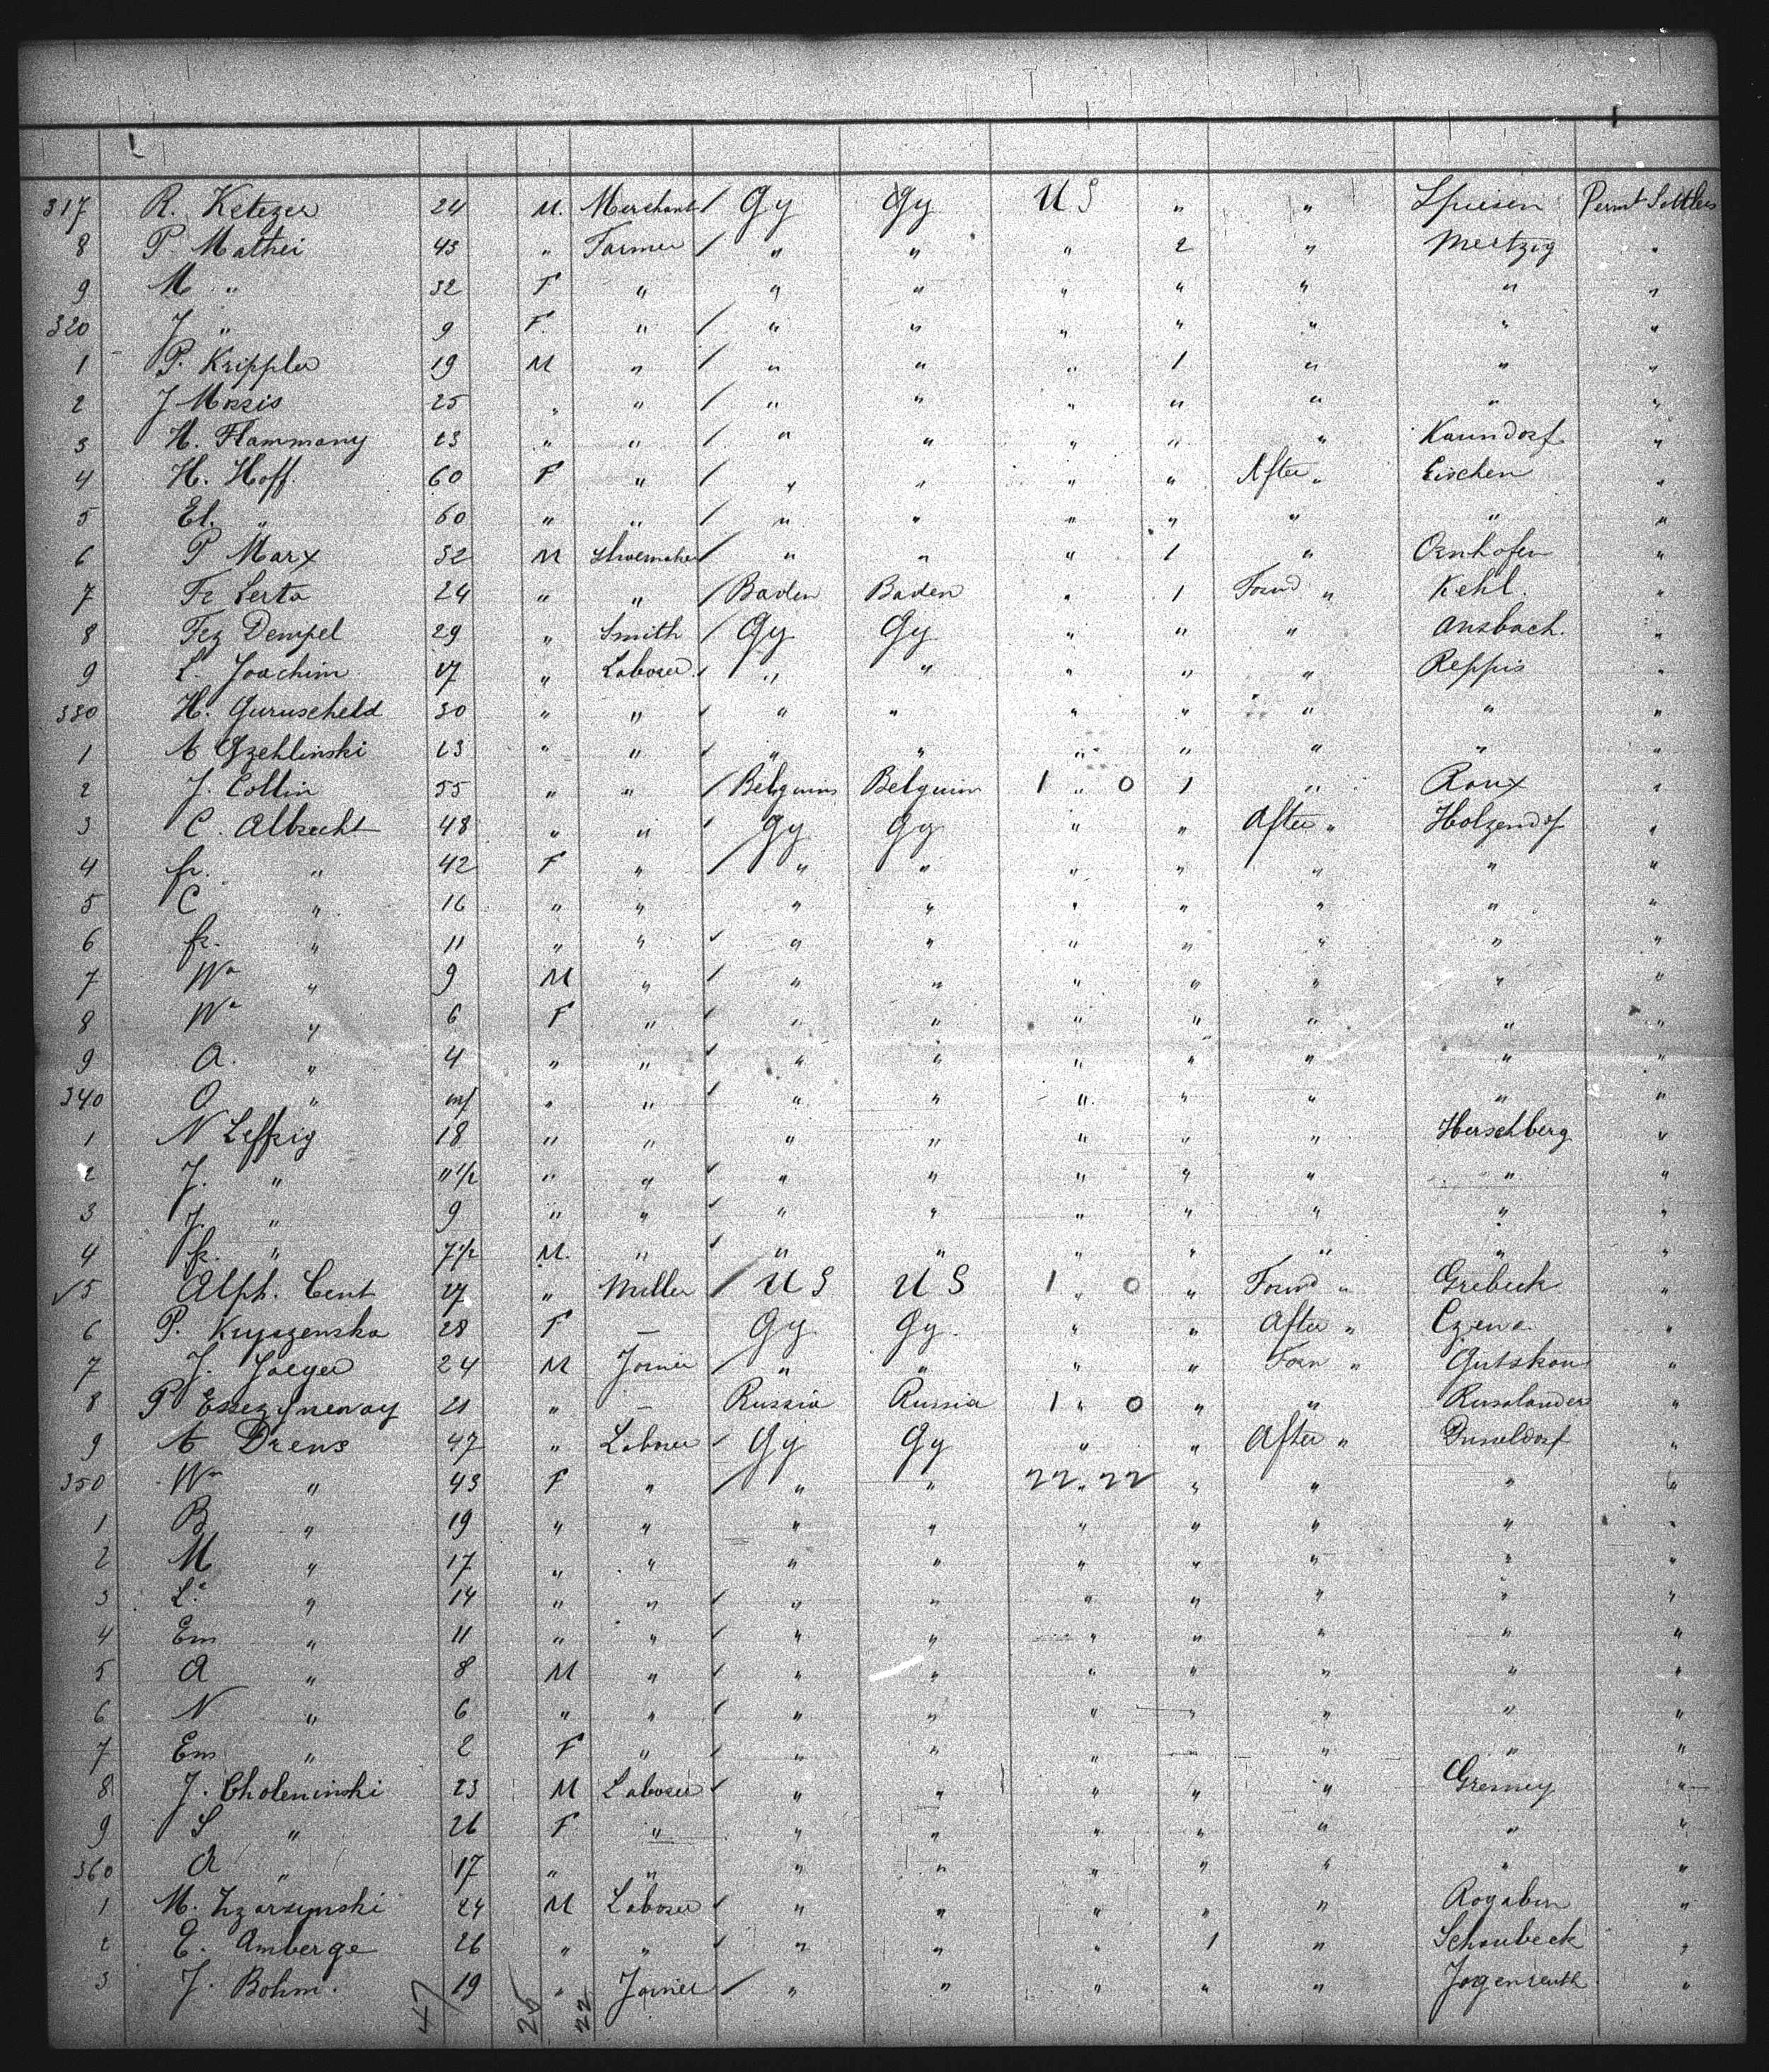 317 R. Ketezer 24 M. Merchant / Gy Gy U S " " Spiesen Permt Settlers
8 P. Mathei 43 " Farmer / " " " 2 " Mertzig "
9 M " 32 F " " " " " " " "
320 J " 9 F. " / " " " " " " "
1 P. Krippler 19 M " / " " " 1 " " "
2 J Morris 25 " " / " " " " " " "
3 H. Flammany 23 " " / " " " " " Kaundorf "
4 H. Hoff. 60 F " / " " " " After " Eischen "
5 El. " 60 " " / " " " " " " "
6 P Marx 32 M Shoemaker / " " " 1 " "
7 Fr Lerto 24 " " / Baden Baden " 1 Forwd " Kehl. "
8 Fez Dempel 29 " Smith / Gy Gy " " " Ansbach. "
9 L. Joachim 17 " Laborer / " " " " " Reppis "
330 H. Guruscheld 30 " " / " " " " " " "
1 A 23 " " / " " " " " " "
2 J. Collin 55 " " / Belguim Belguim 1 " 0 1 " Roux "
3 C. Albrecht 48 " " / Gy Gy " " After " Holzendof "
4 fr. " 42 F " / " " " " " " "
5 C " 16 " " " " " " " " "
6 fr. " 11 " " / " " " " " " "
7 Wm " 9 M " / " " " " " " "
8 We " 6 F " / " " " " " " "
9 A. " 4 " " / " " " " " " "
340 O " inf " " / " " " " " " "
1 N Leffzig 18 " " " " " " " Herschberg "
2 J. " 11 1/2 " " / " " " " " " "
3 J. " 9 " " / " " " " " " "
4 fr. " 7 1/2 M. " / " " " " " " "
√5 Alph. Cent 17 " Miller / U S U S 1 " 0 " Forwd " Grebeck "
6 P. Kuyszenska 28 F — Gy Gy. " " After " Czena. "
7 J. Jaeger 24 M Joiner / " " " " Forw " Gutskow "
8 P 21 " — Russia Russia 1 " 0 " " Russlander "
9 A Drens 47 " Laborer / Gy Gy " " After " Dusseldorf "
350 Wn " 43 F " / " " 22 " 22 " " " "
1 B " 19 " " " " " " " " "
2 M " 17 " " " " " " " " "
3 Le " 14 " " / " " " " " " "
4 Em " 11 " " / " " " " " " "
5 A " 8 M " / " " " " " " "
6 N " 6 " " / " " " " " " "
7 Em " 2 F " / " " " — " " "
8 J. Choleninski 23 M Laborer / " " " " " Gremey "
9 S " 26 F " " " " " " " "
360 A " 17 " " " " " " " " "
1 M. 24 M Laborer / " " " " " Rogaben "
2 E. Amberge 26 " " / " " " 1 " Schoubeck "
3 J. Bohm. 19 " Joiner / " " " " " Jogenreuth "
47 25 22